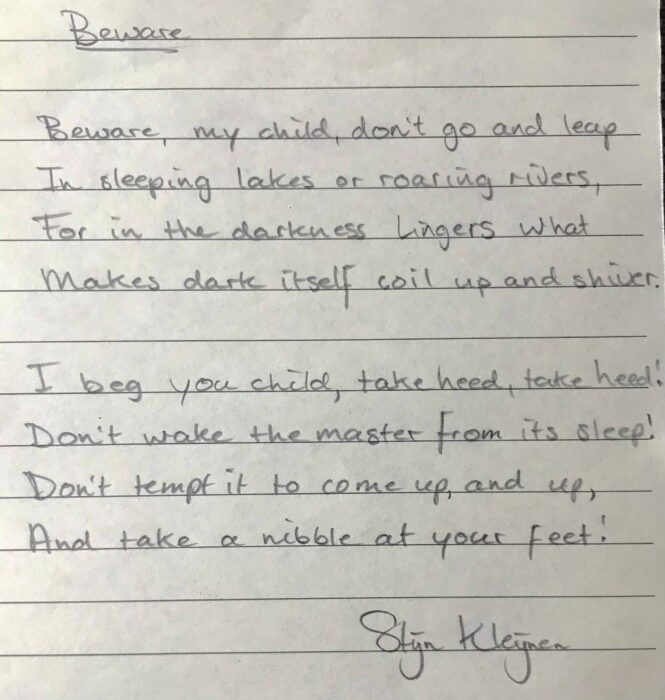 Beware
Beware, my child, don't go and leap
In sleeping lakes or roaring rivers,
For in the darkness lingers what
Makes dark itself coil up and shiver.
I beg you child, take heed, take heed!
Don't wake the master from its sleep!
Don't tempt it to come up, and up,
And take a nibble at your feet!
Stijn Kleijnen